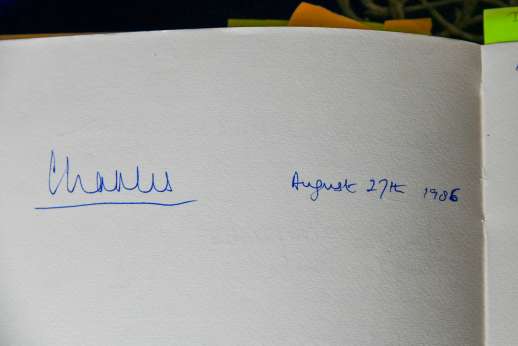 Charles August 27th 1986